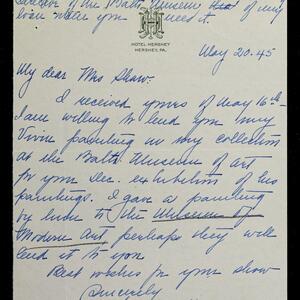 Director of the Balto Museum that of my
loan when you need it.
HH
HOTEL HERSHEY
HERSHEY, PA.
May 20. 45
My dear Mrs Shaw.
I received yours of May 16th
I am willing to lend you my
Vivin painting in my collection
at the Balto Museum of art
for your Dec. exhibition of his
paintings. I gave a painting
by him to the Museum of
Modern Art perhaps they will
lend it to you
Best wishes for your show
Sincerely